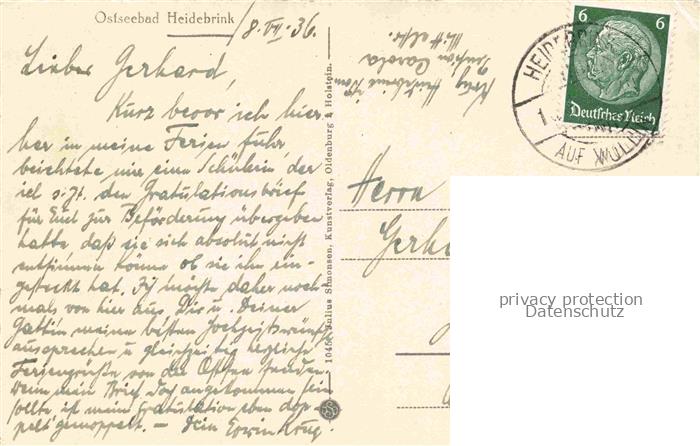 Ostseebad Heidebrink
8. VII. 36.
Lieber Gerhard,
Kurz bevor ich hier-
her in meine Ferien fuhr,
beichtete mir eine Schülerin, der
ich s. Zt. den Gratulationsbrief
für Euch zur Beförderung übergeben
hatte, daß sie sich absolut nicht
entsinnen könne ob sie ihn ein-
gesteckt hat. Ich möchte daher noch-
mals von hier aus Dir u. Deiner
Gattin meinen besten Hochzeitswünsche
aussprechen u gleichzeitig herzliche
Feriengrüße von der Ostsee senden.
Wenn mein Brief doch angekommen sein
sollte ist meine Gratulation eben dop-
pelt gemoppelt. — Dein Erwin Krug.
10454 Julius Simonsen, Kunstverlag, Oldenburg i. Holstein.
JSO
Krug Heidebrink
Pension
6 6
Deutsches Reich
HEIDEBR
1
AUF WOLLIN
Herrn
Gerh
privacy protection
Datenschutz